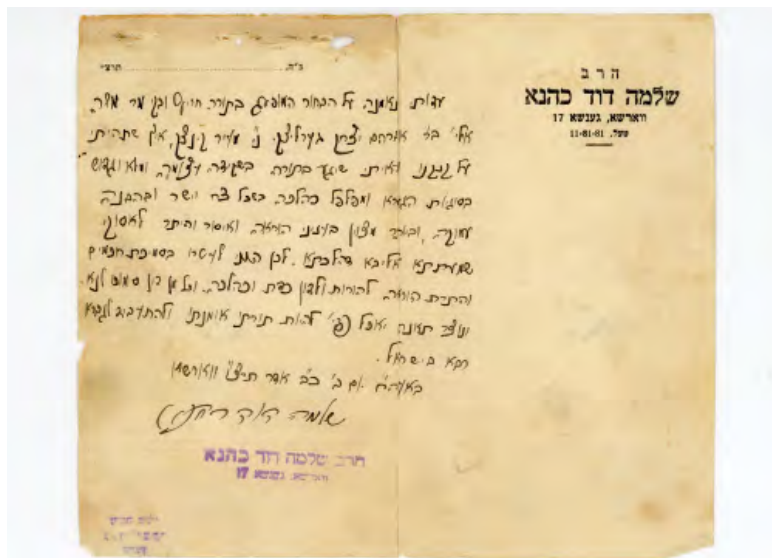 הרב
שלמה דוד כהנא
ווארשא, גענשא 17
טעל. 11-81-81
ב"ה, תרצ"
עדות נאמנה על הבחור המופלג בתורה חו"ב
אלי' בר אברהם יצחק
על וראיתי שיגע בתורה בשקידה עצומה, ומלא וגדוש
בסוגיות הגמרא ומפלפל כהלכה בשכל צח וישר ובהבנה
עמוקה, וביותר מצוין בעניני הוראה, ואיסור והיתר לאסוקי
שמעתתא אליבא דהלכתא. לכן הנני לעטרו בסמיכת חכמים
והתרת הוראה, להורות ולדון כדת וכהלכה, וכל מן דין סמוכו לנא.
ונוצר תאנה יאכל פרי' להיות תורתו אומנתו ולהתעביד לגברא
רבא בישראל.
באעה"ח יום ב' כ"ב אדר ווארשא
שלמה דוד כהנא
הרב שלמה דוד כהנא
ווארשא, גענשא 17